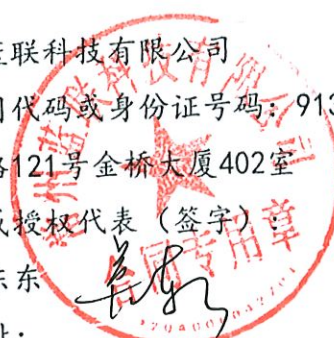 联科技有限公司
代码或身份证号码：913
121号金桥大厦402室
授权代表（签字）：
东
州蓝联科技有限公司
合同专用章